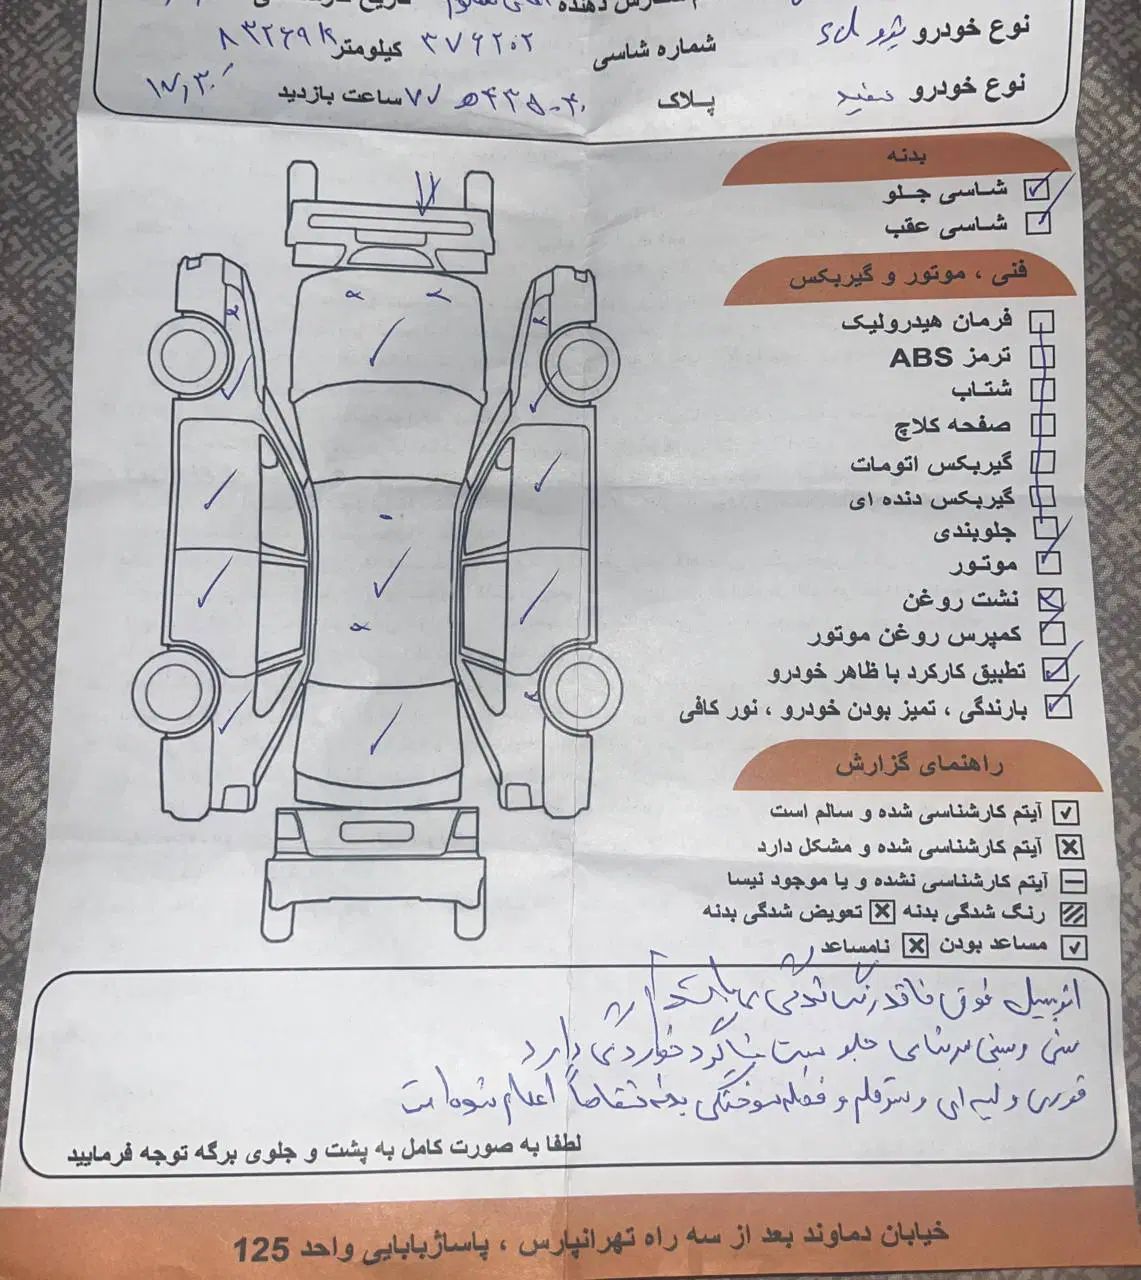 نوع خودرو پژو sd شماره شاسی ۳۷۶۲۰۲ کیلومتر ۸۳۲۶۹k
نوع خودرو سفید پلاک ۷۷ ساعت بازدید ۱۷,۳۰
بدنه
شاسی جلو
شاسی عقب
فنی ، موتور و گیربکس
فرمان هیدرولیک
ترمز ABS
شتاب
صفحه کلاچ
گیربکس اتومات
گیربکس دنده ای
جلوبندی
موتور
نشت روغن
کمپرس روغن موتور
تطبیق کارکرد با ظاهر خودرو
بارندگی ، تمیز بودن خودرو ، نور کافی
راهنمای گزارش
آیتم کارشناسی شده و سالم است
آیتم کارشناسی شده و مشکل دارد
آیتم کارشناسی نشده و یا موجود نیسا
رنگ شدگی بدنه تعویض شدگی بدنه
مساعد بودن نامساعد
اتومبیل فوق فاقد رنگ شدگی می باشد
سینی جلو خوردگی دارد
و لیه ای و اعلام شده است
لطفا به صورت کامل به پشت و جلوی برگه توجه فرمایید
خیابان دماوند بعد از سه راه تهرانپارس ، پاساژبابایی واحد 125